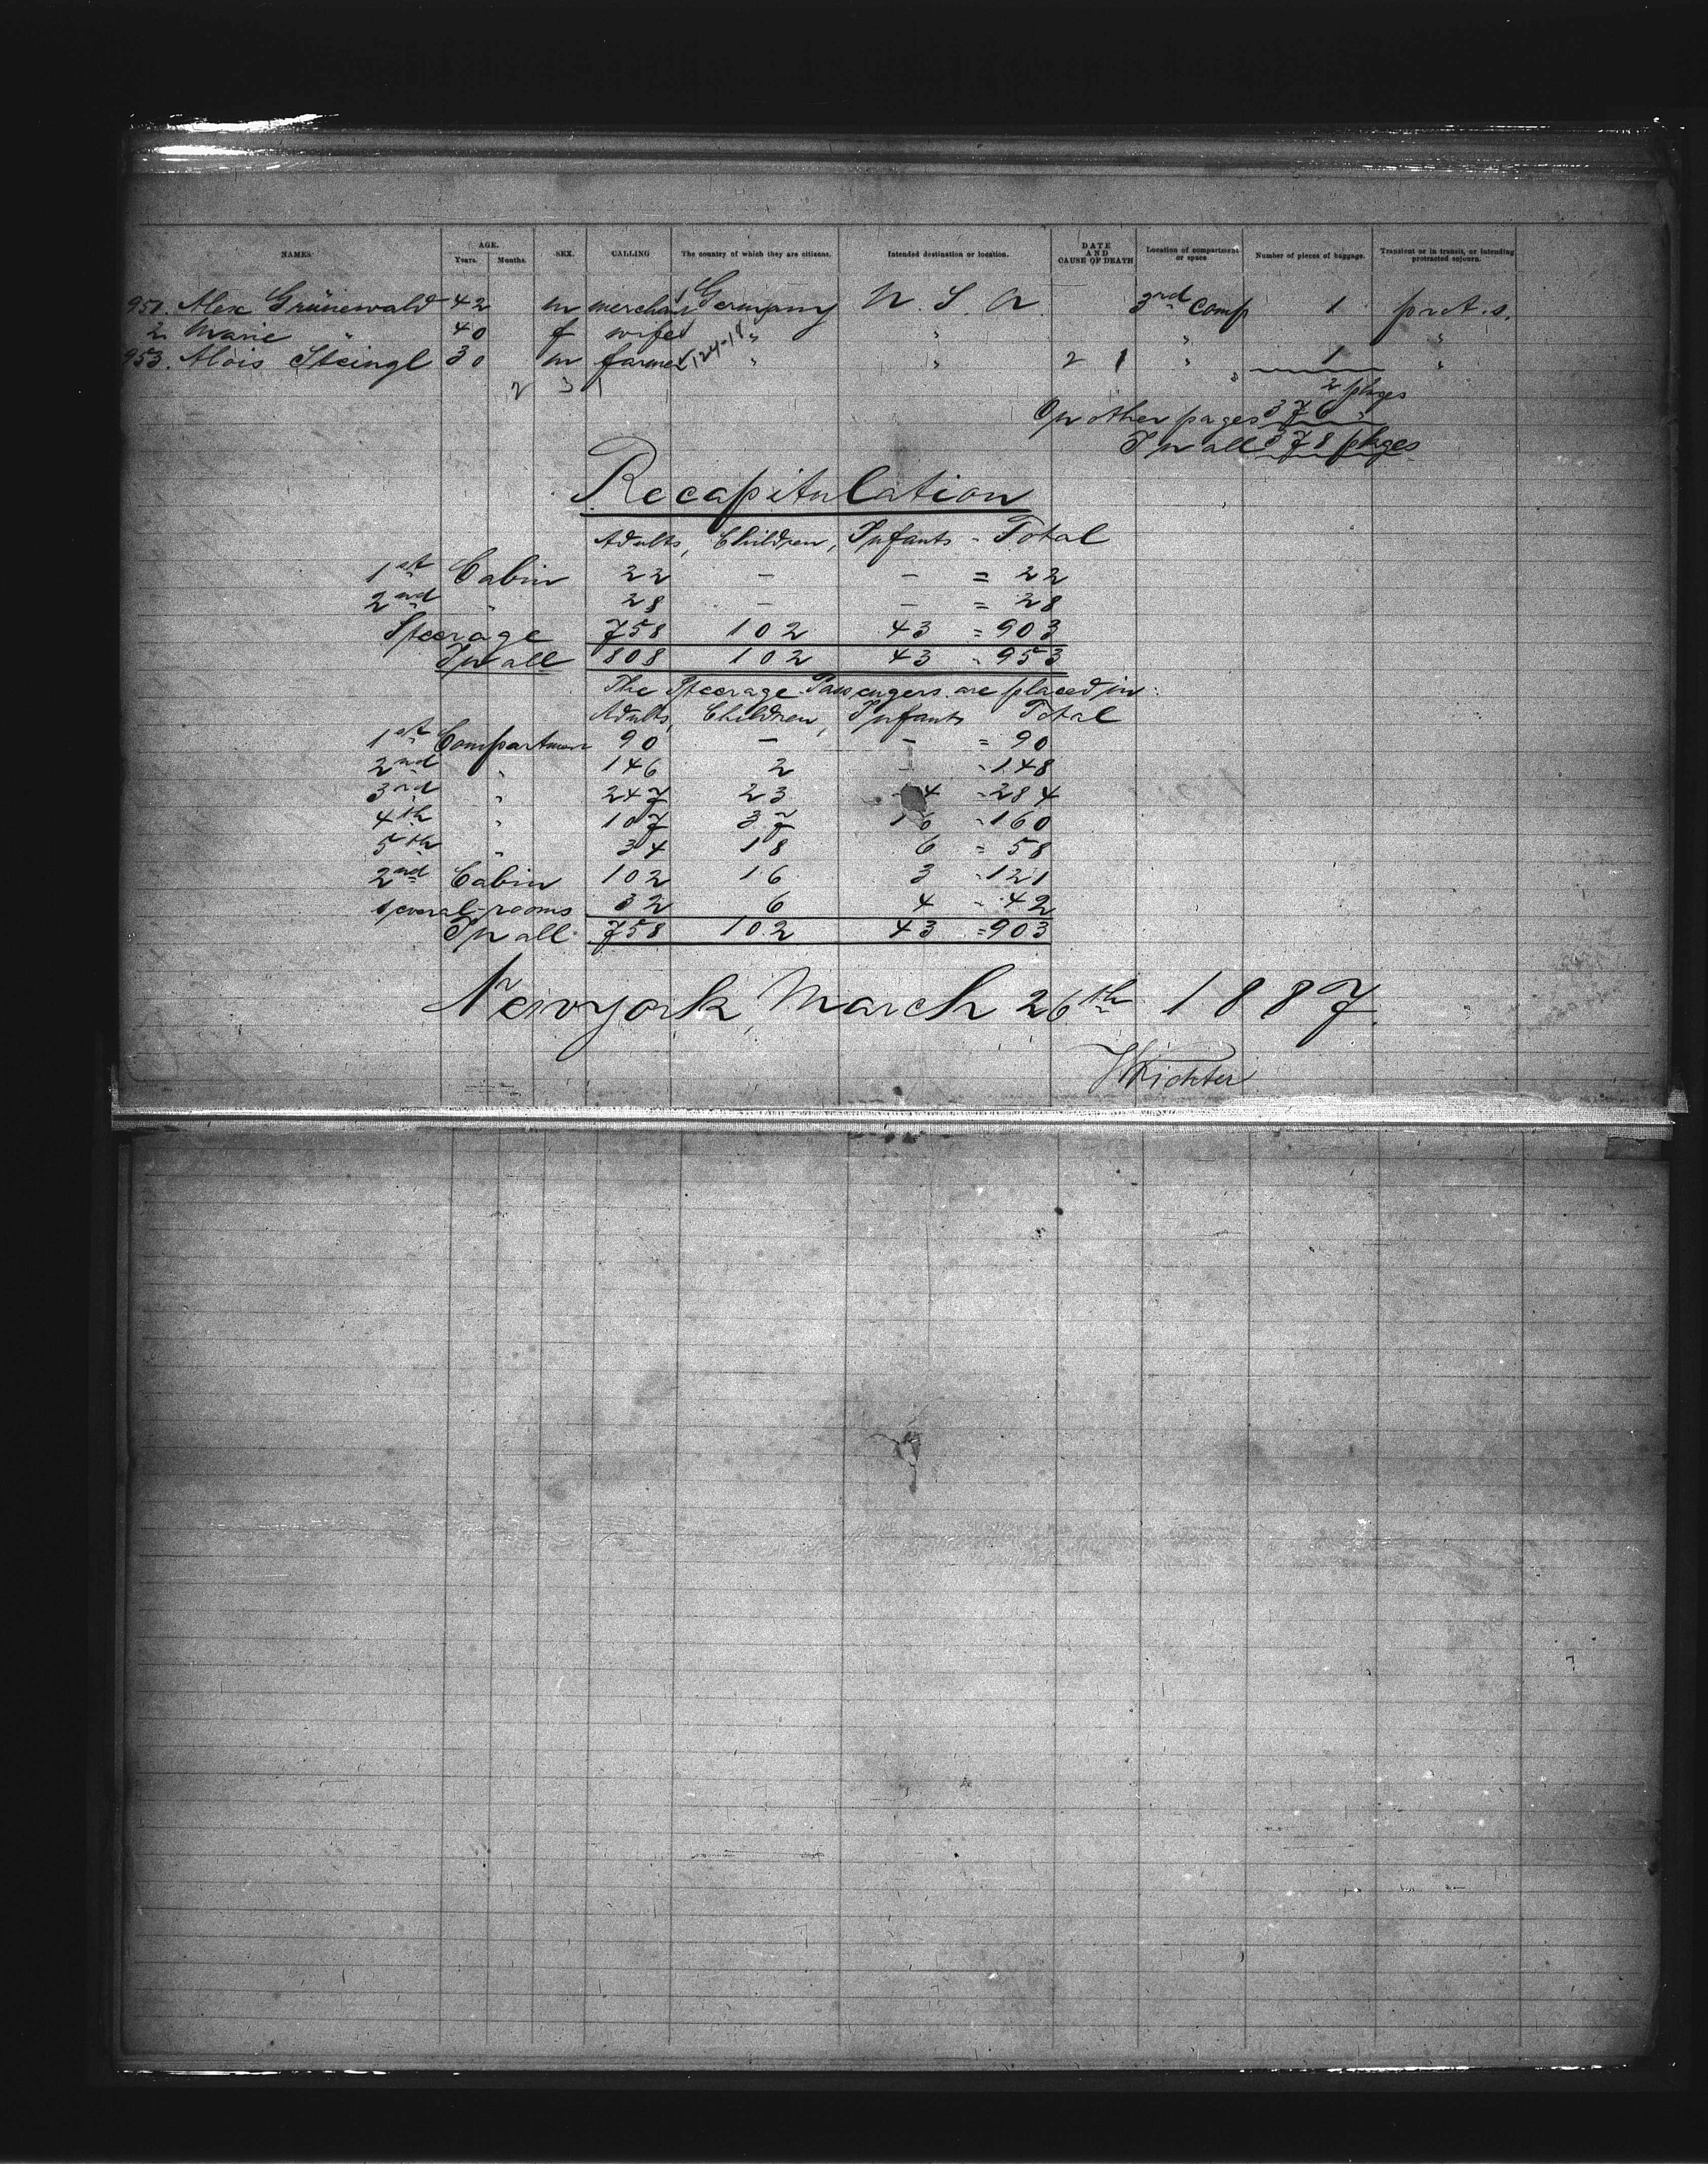 NAMES AGE. Years. Months. SEX. CALLING The country of which they are citizens. Intended destination or location. DATE AND CAUSE OF DEATH Location of compartment or space Number of pieces of baggage. Transient or in transit, or intending protracted sojourn.
951. Alex Grünewald 42 m merchant Germany U. S. A. 3rd Comp 1 prot. s.
2. Marie " 40 f wife " " " "
953. Alois Steingl 30 m farmer 124-18 " " 2 1 " 1 "
2 3 1 2 pkges
On other pages 376 "
In all 378 pkges
Recapitulation
Adults, Children, Infants - Total
1st Cabin 22 - - = 22
2nd " 28 - - = 28
Steerage 758 102 43 = 903
In all 808 102 43 - 953
The Steerage Passengers are placed in:
Adults, Children, Infants Total
1st Compartment 90 - - = 90
2nd " 146 2 - - 148
3rd " 247 23 4 - 284
4th " 107 37 16 - 160
5th " 34 18 6 = 58
2nd Cabin 102 16 3 - 121
several-rooms 32 6 4 - 42
In all 758 102 43 = 903
Newyork, March 26th 1887.
Richter